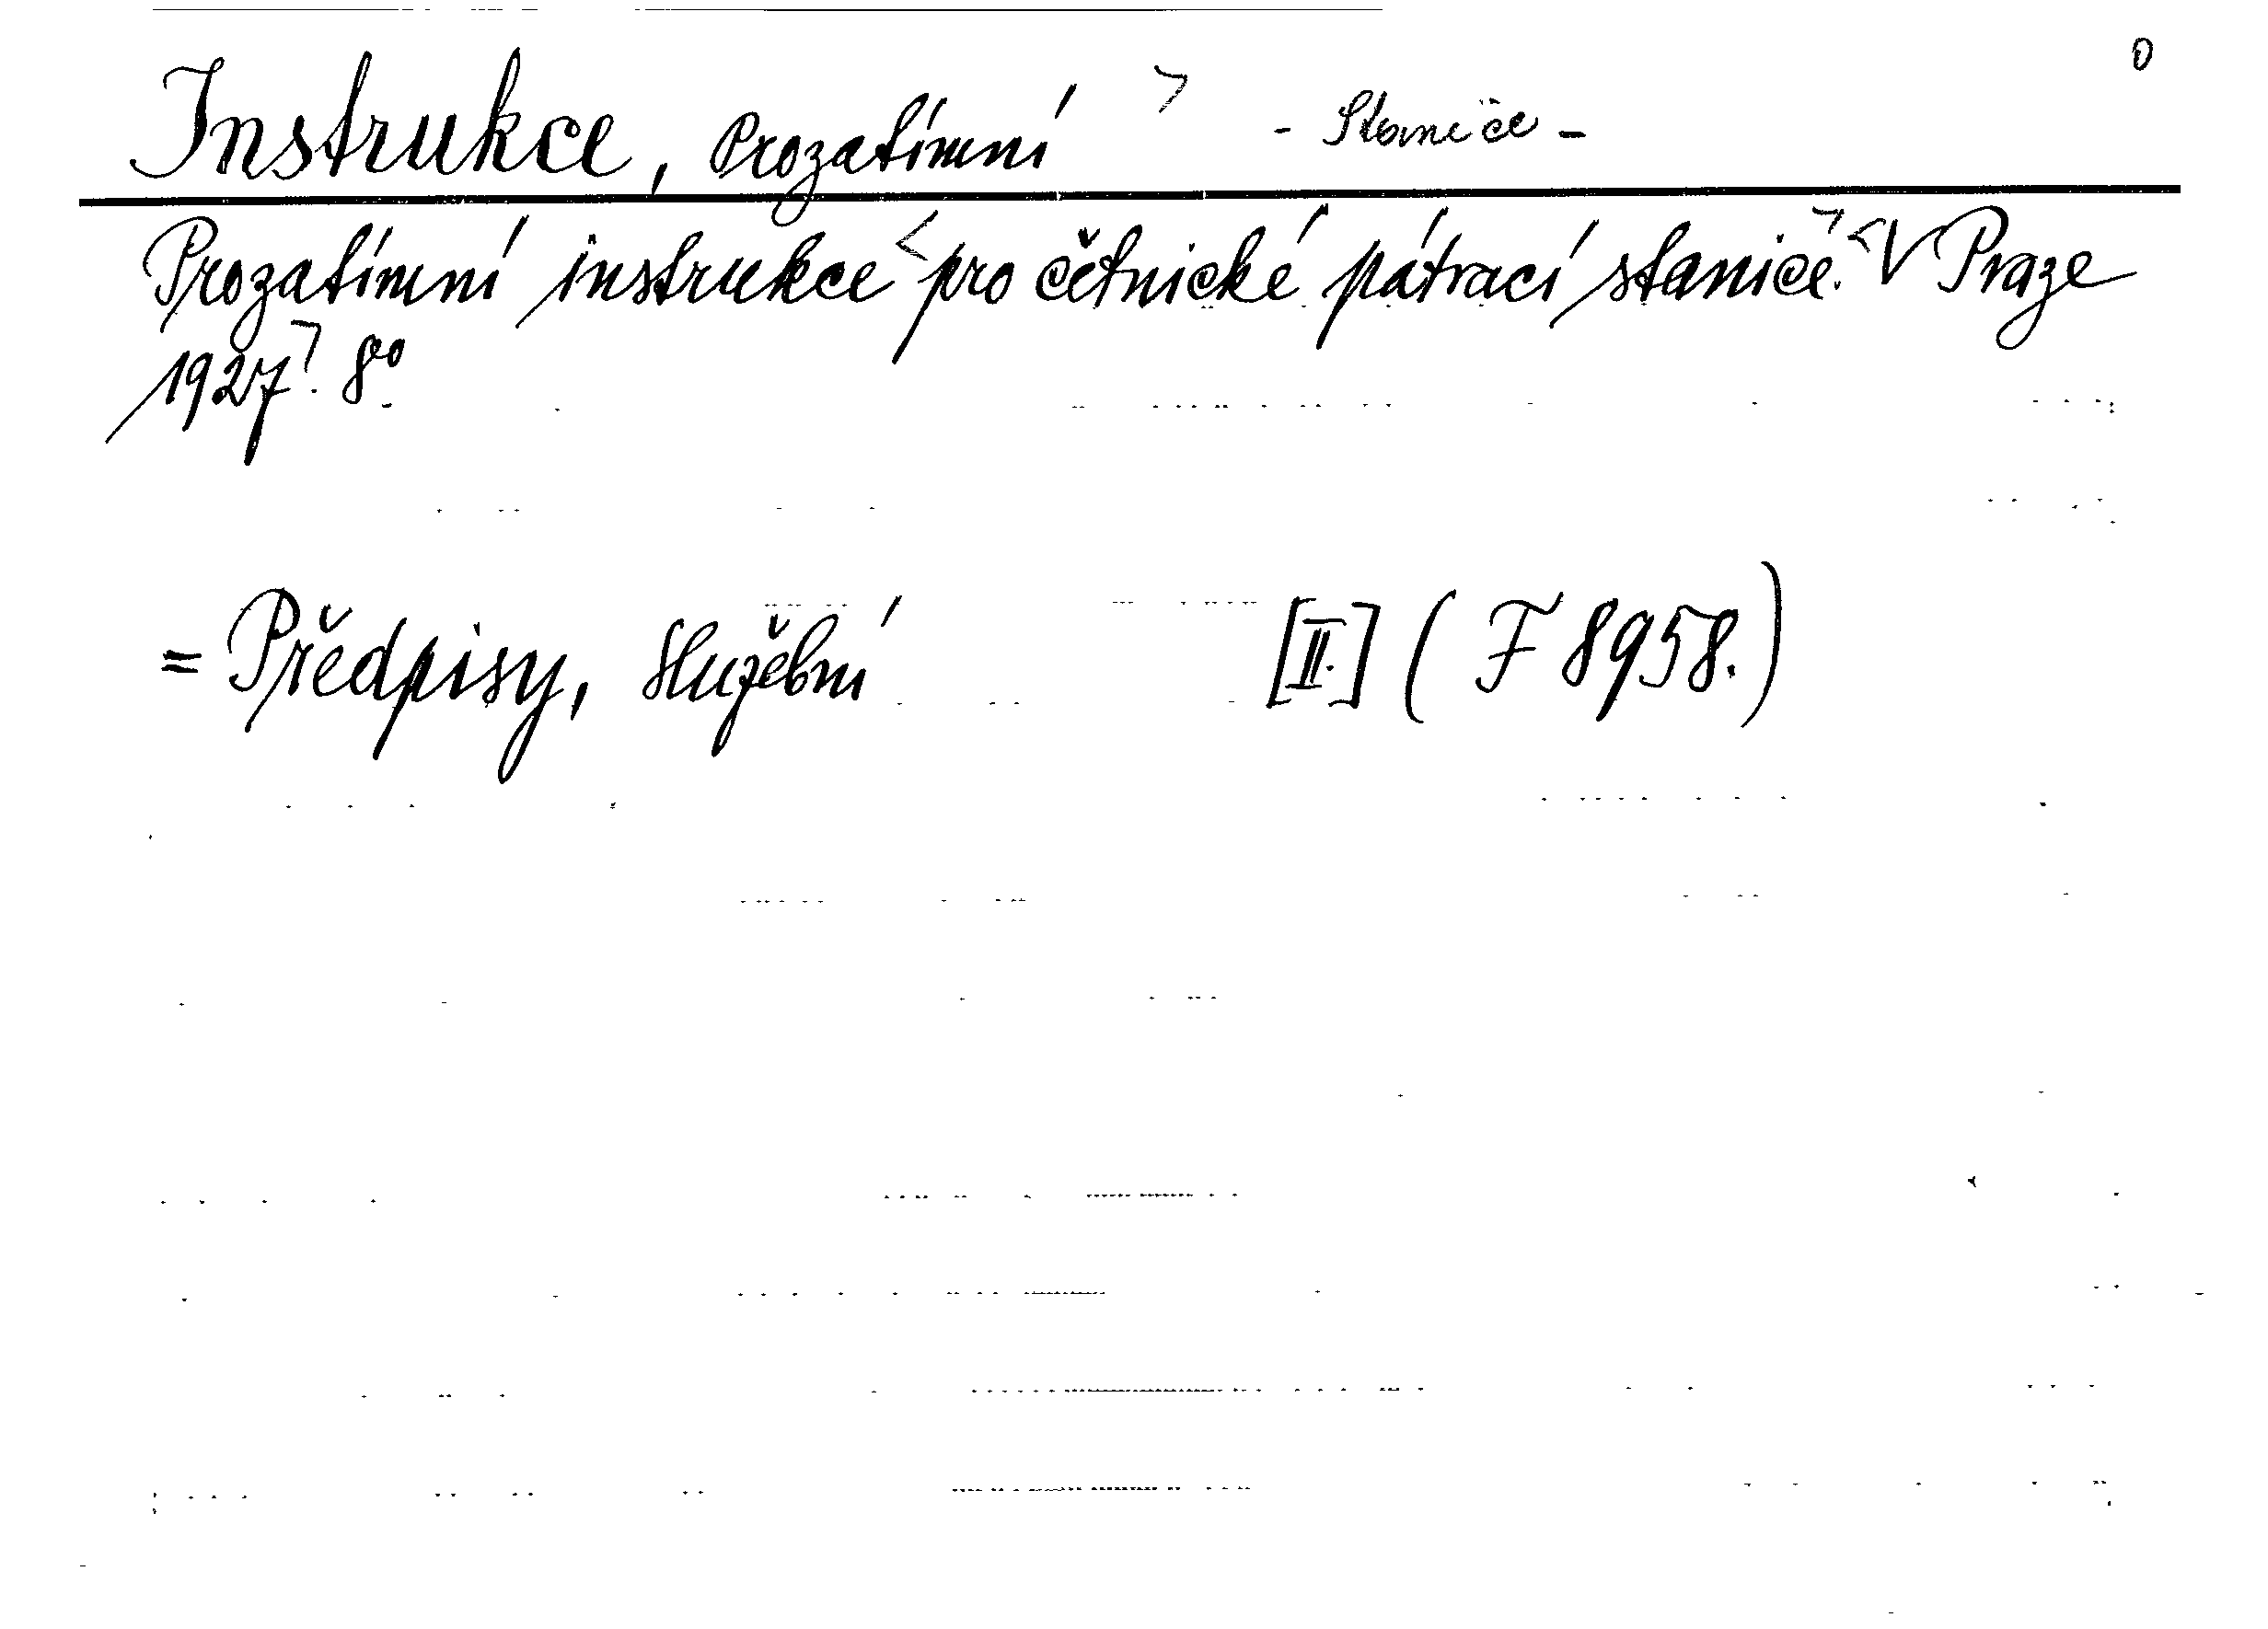 Instrukce, Prozatímní > - Staničе - 0
Prozatímní instrukce < pro četnické pátrací stanice. > < V Praze
1927 >. 8°
= Předpisy, služební [II.] (F 8958.)